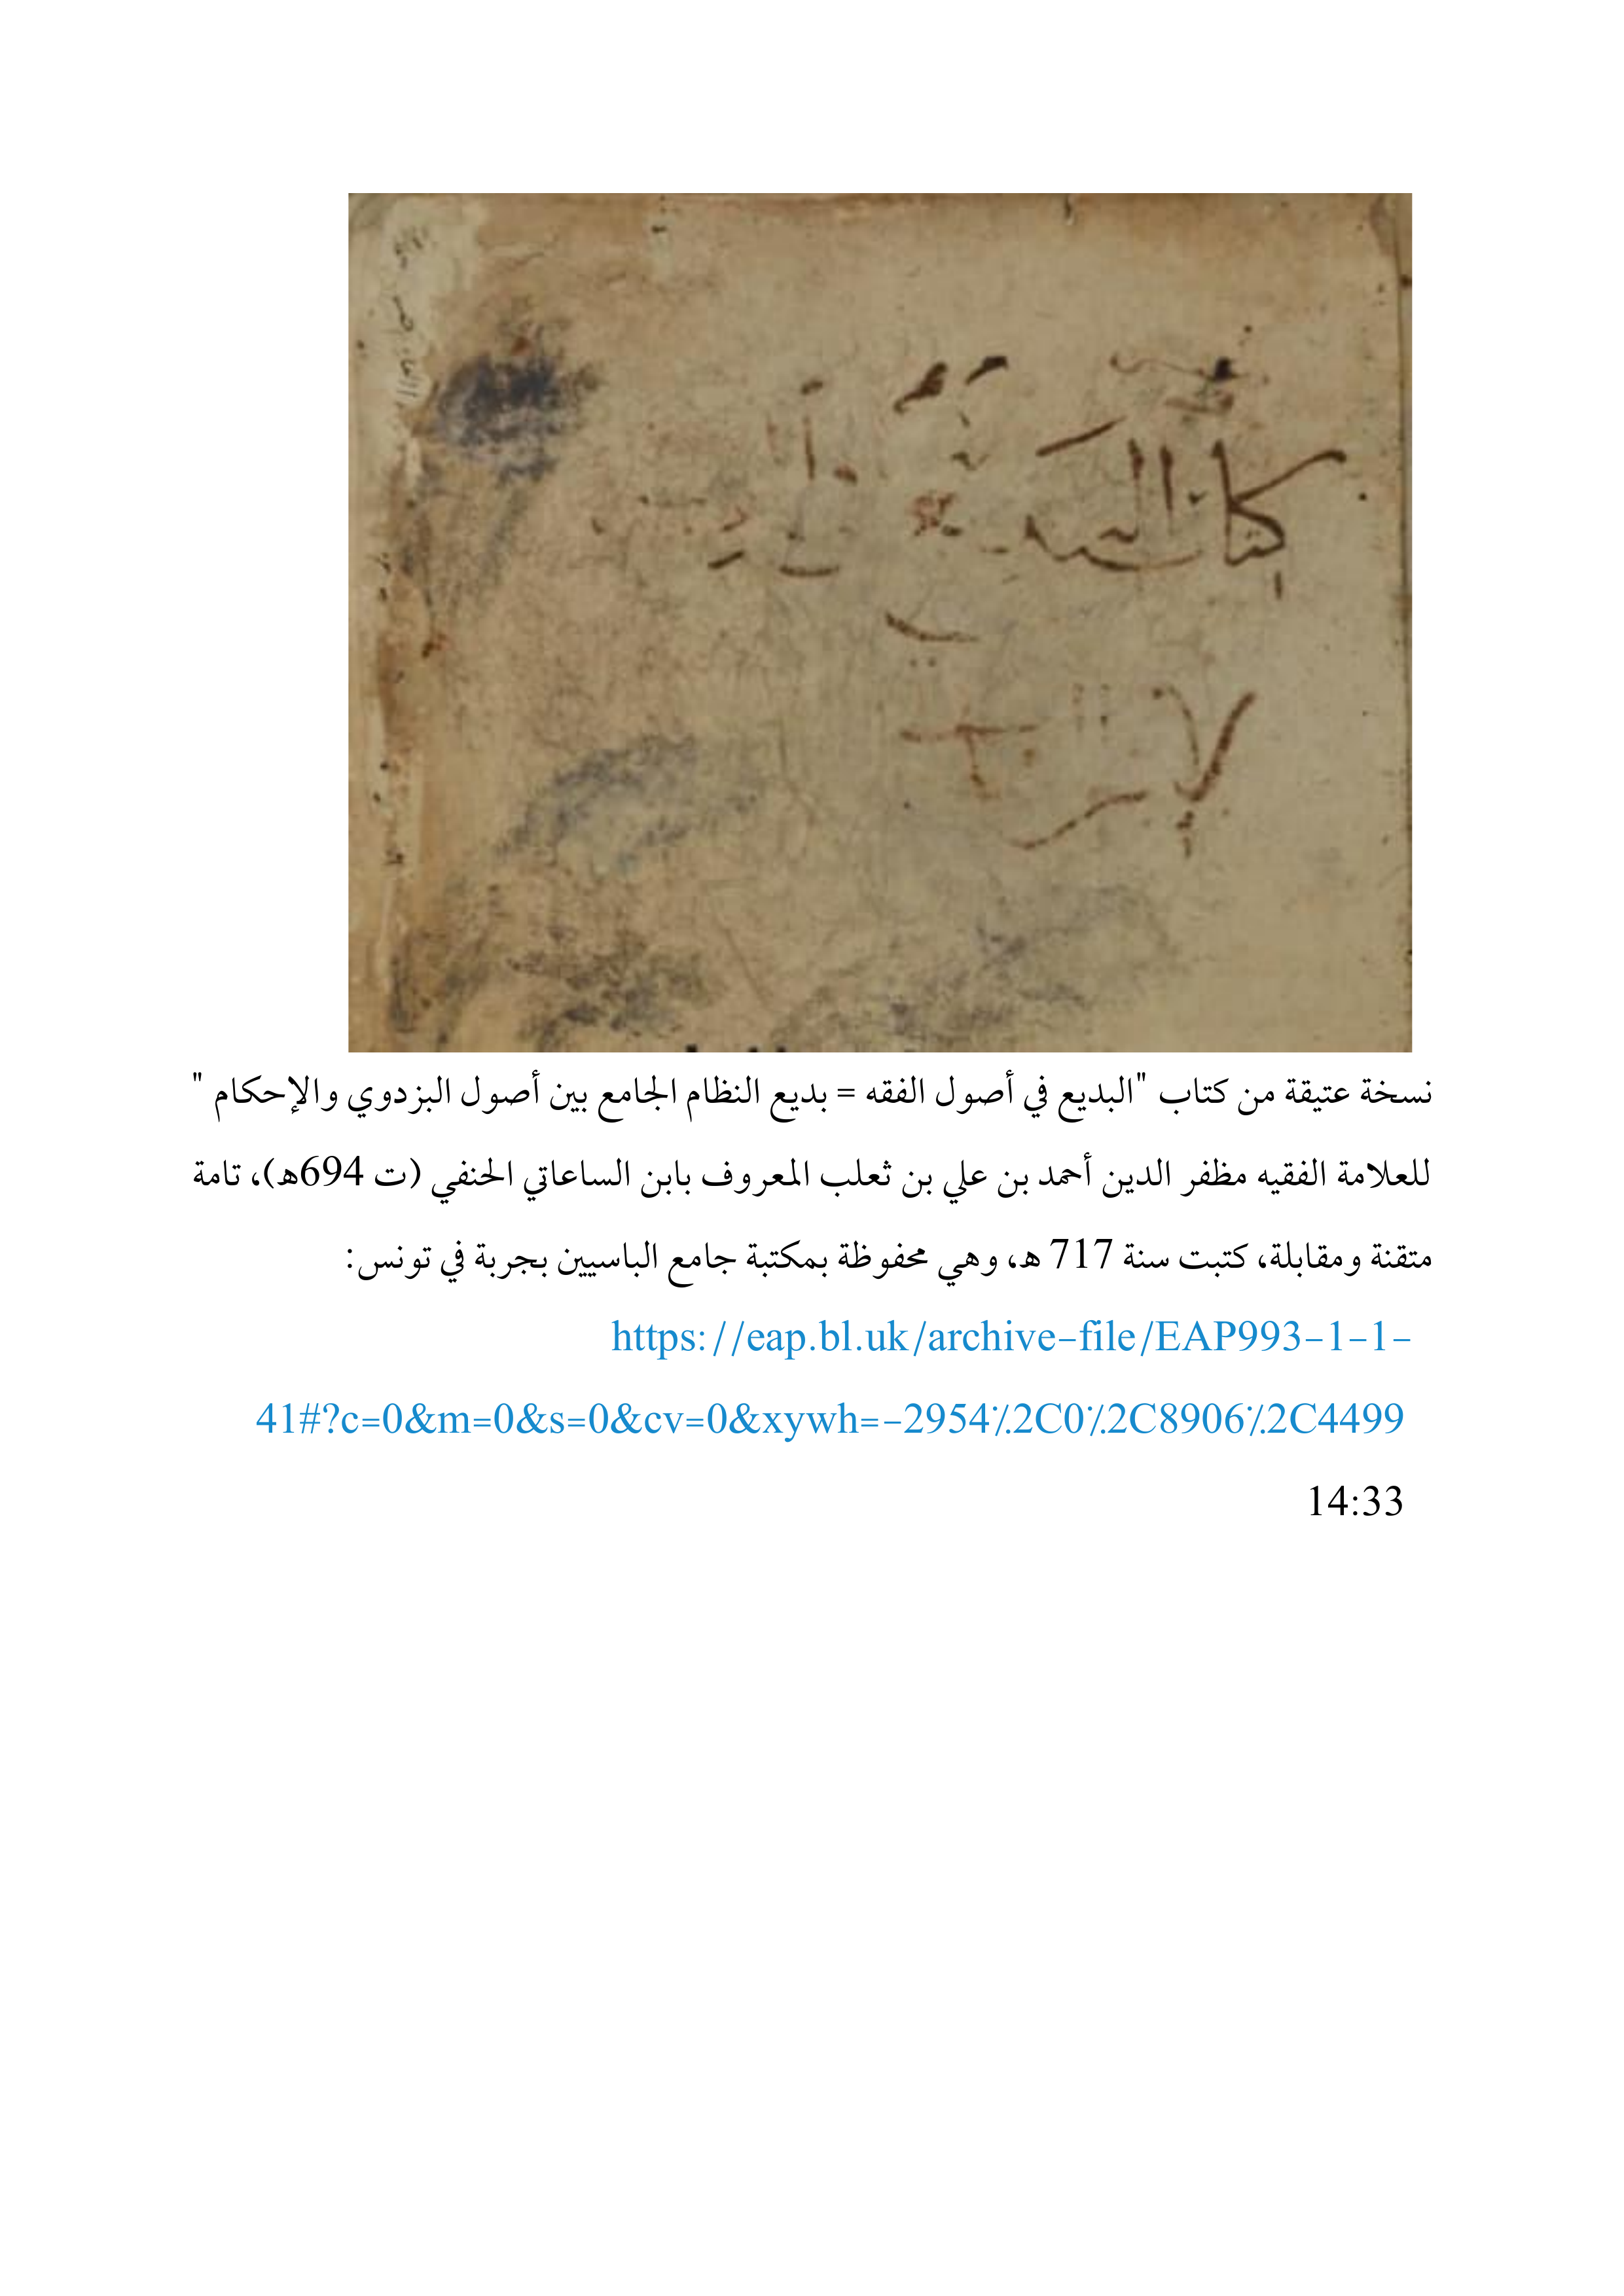 كتاب البديع
نسخة عتيقة من كتاب "البديع في أصول الفقه = بديع النظام الجامع بين أصول البزدوي والإحكام "
للعلامة الفقيه مظفر الدين أحمد بن علي بن ثعلب المعروف بابن الساعاتي الحنفي (ت 694ه)، تامة
متقنة ومقابلة، كتبت سنة 717 ه، وهي محفوظة بمكتبة جامع الباسيين بجربة في تونس:
https://eap.bl.uk/archive-file/EAP993-1-1-
41#?c=0&m=0&s=0&cv=0&xywh=-2954%2C0%2C8906%2C4499
14:33